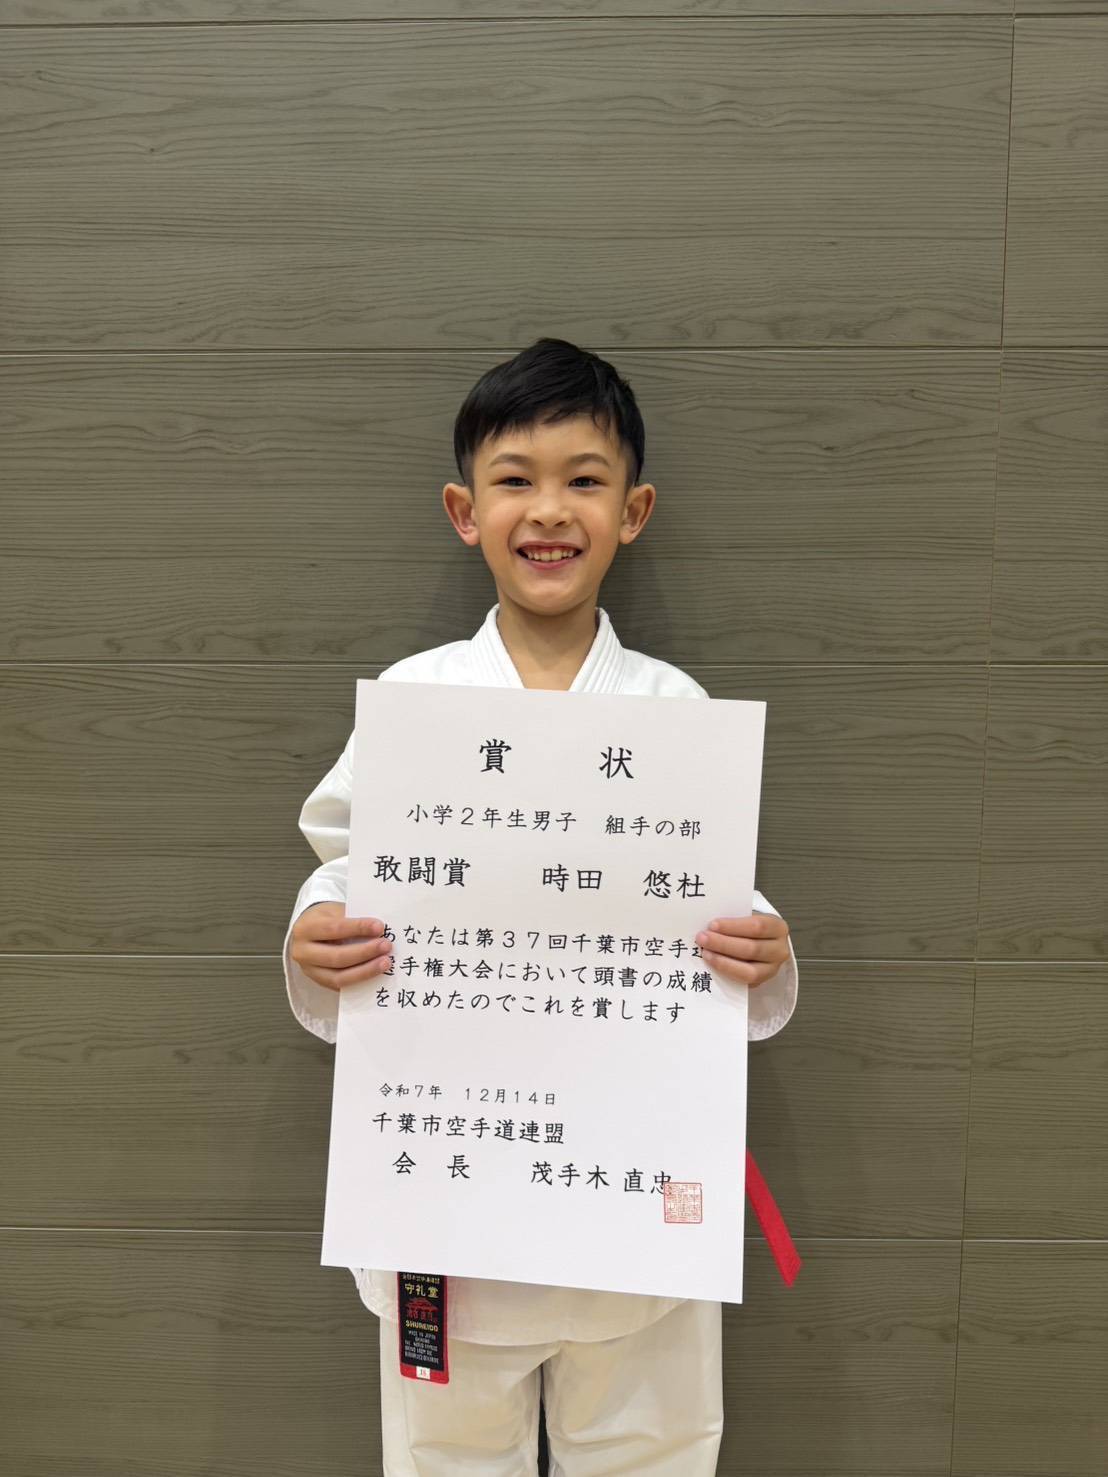 賞 状
小学２年生男子 組手の部
敢闘賞 時田 悠杜
あなたは第３７回千葉市空手道
選手権大会において頭書の成績
を収めたのでこれを賞します
令和７年 １２月１４日
千葉市空手道連盟
会 長 茂手木 直忠
守礼堂
SHUREIDO